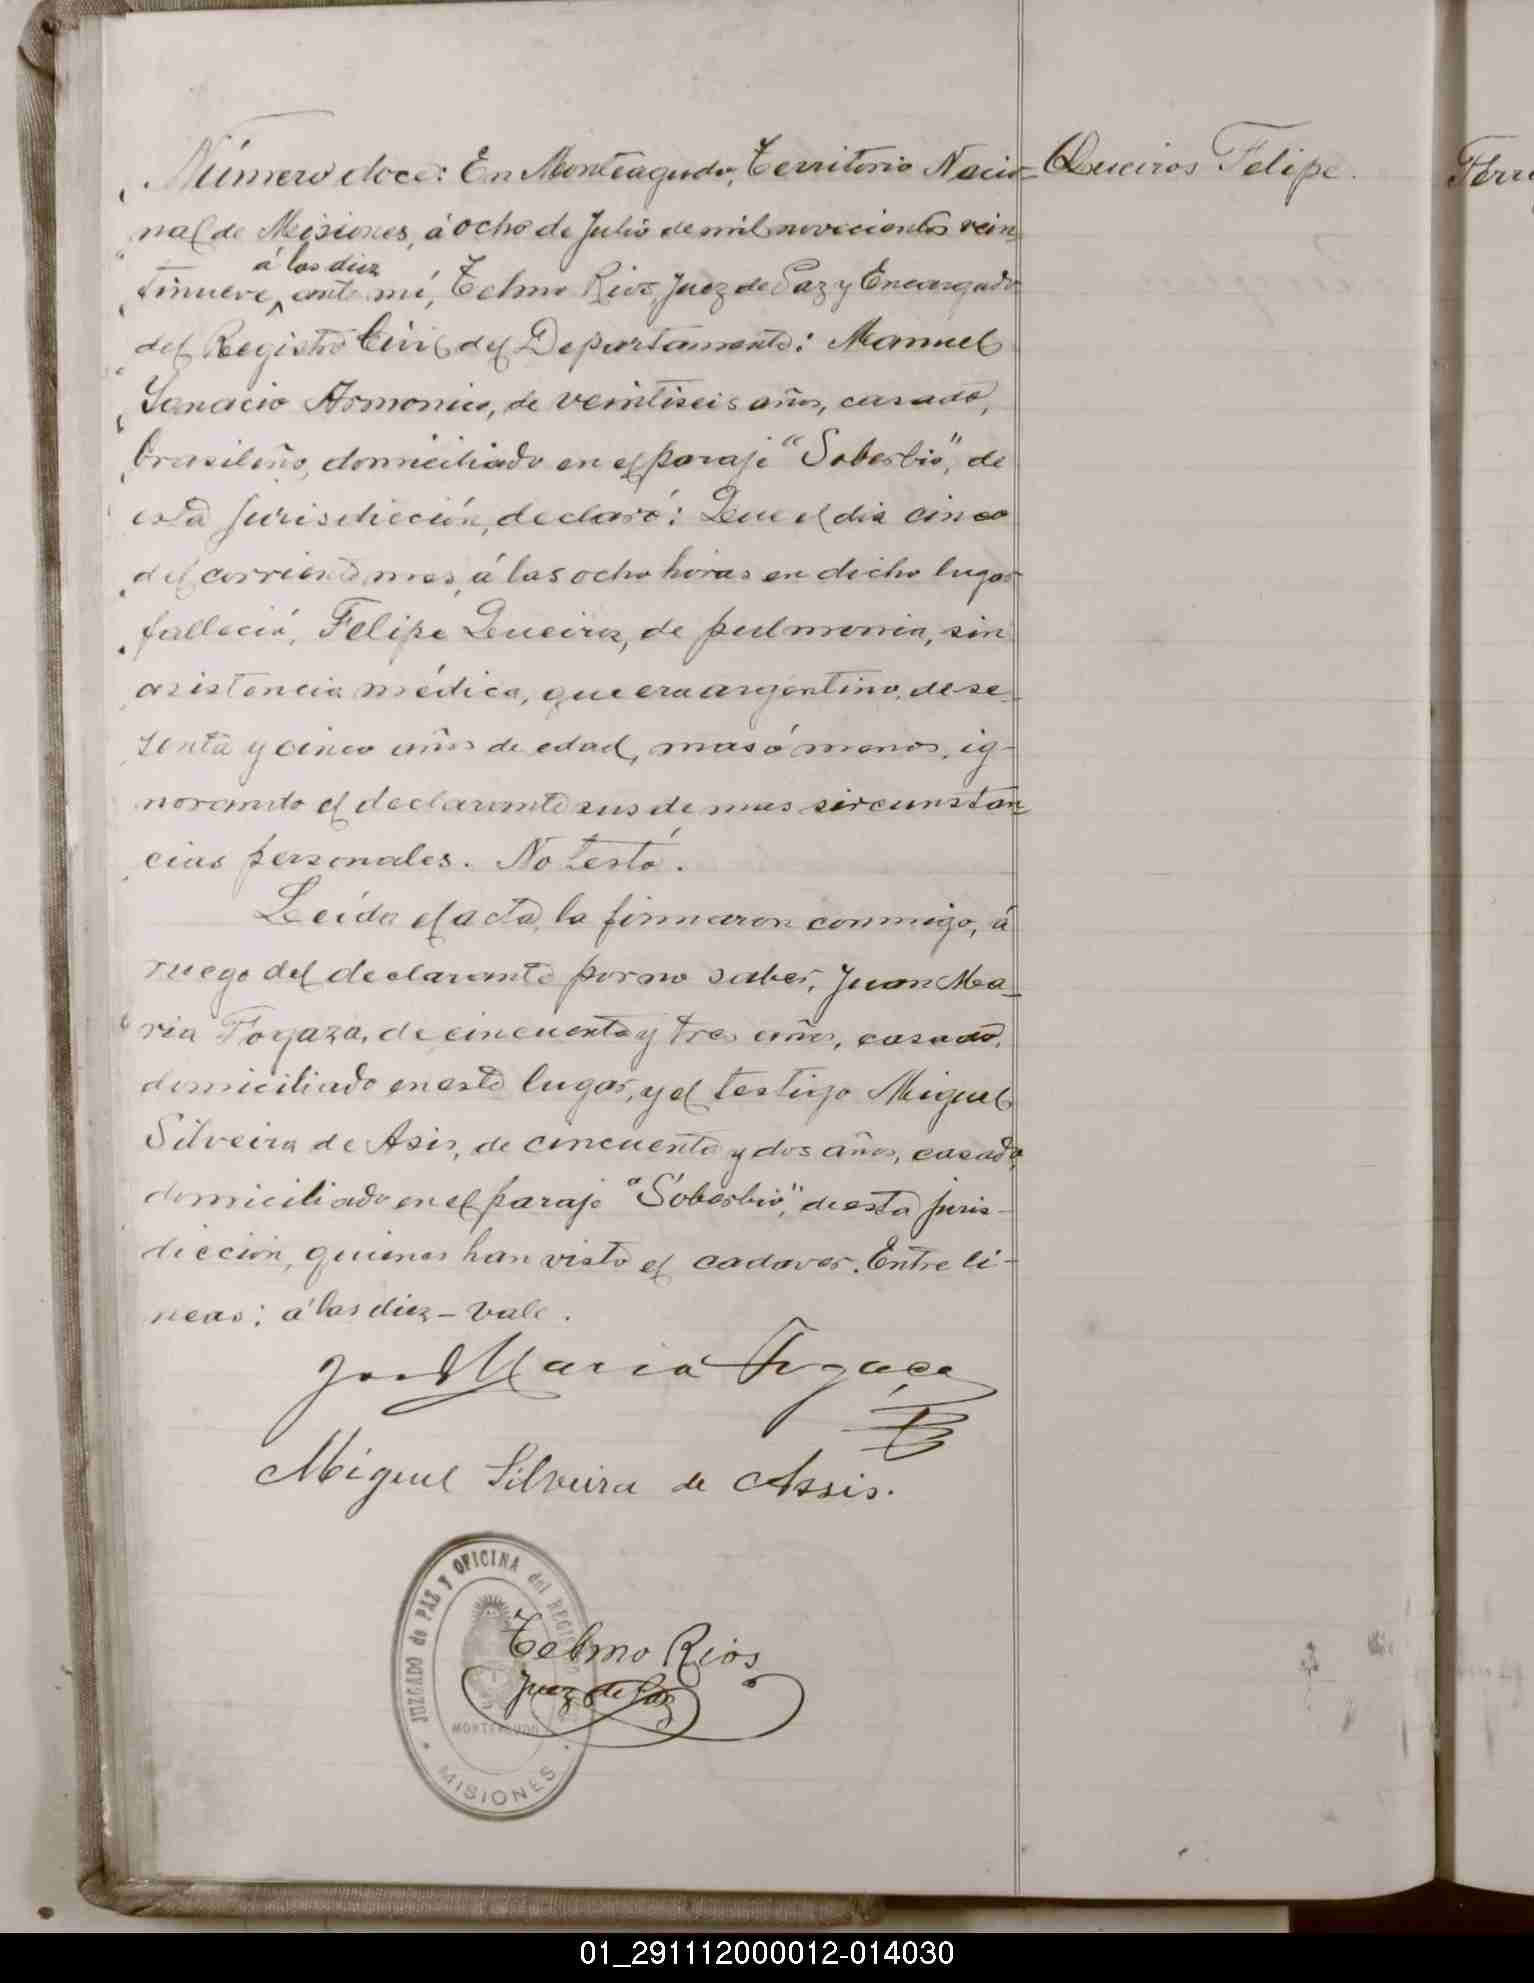 Número doce: En Monteagudo, Territorio Nacio-
Queiros Felipe.
nal de Misiones, á ocho de Julio de mil novecientos vein-
á las diez
tinueve, ante mí, Telmo Rios, Juez de Paz y Encargado
del Registro Civil del Departamento: Manuel
Ignacio Armonico, de veintiseis años, casado,
brasileño, domiciliado en el paraje "Soberbio", de
esta jurisdicción, declaró: Que el dia cinco
del corriente mes, á las ocho horas en dicho lugar
falleció, Felipe Queiros, de pulmonia, sin
asistencia médica, que era argentino, de se-
senta y cinco años de edad, mas ó menos, ig-
norando el declarante sus demas sircunstan-
cias personales. No testó.
Leída el acta, la firmaron conmigo, á
ruego del declarante por no saber, Juan Ma-
ria Fogaza, de cincuenta y tres años, casado,
domiciliado en este lugar, y el testigo Miguel
Silveira de Asis, de cincuenta y dos años, casado,
domiciliado en el paraje "Soberbio", de esta juris-
dicción, quienes han visto el cadaver. Entre li-
neas: á las diez - vale.
Maria Fogaça
Miguel Silveira de Assis.
JUZGADO de PAZ Y OFICINA del
Telmo Rios
Juez de Paz
MONTEAGUDO
MISIONES
01_291112000012-014030